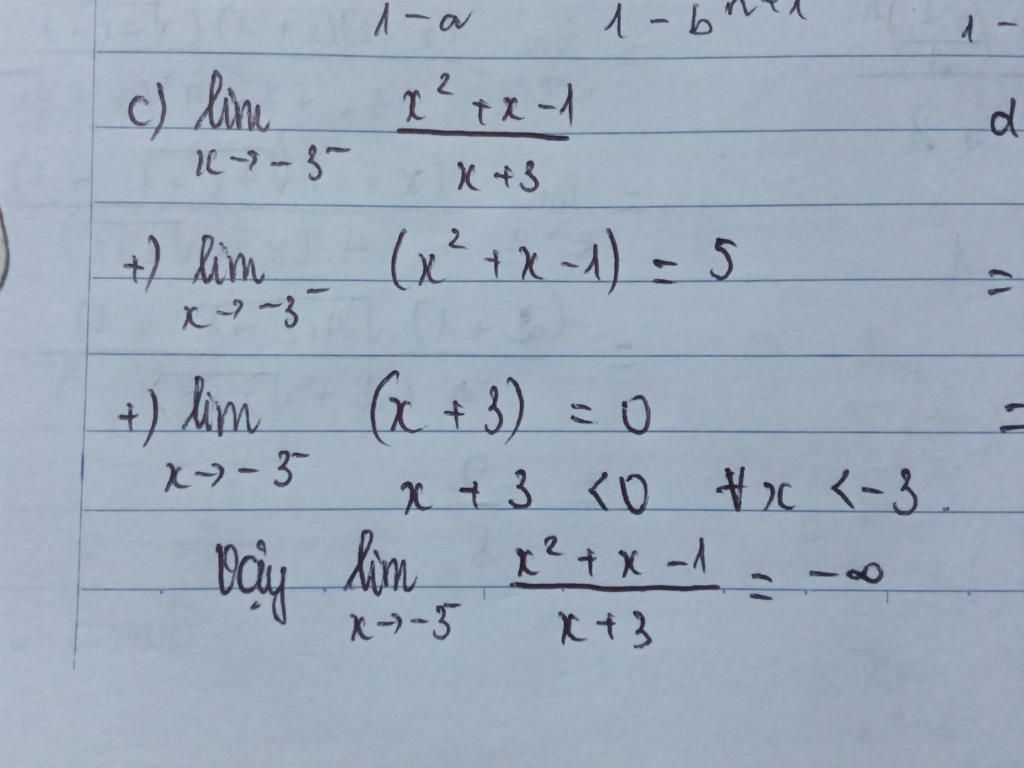 1 - a 1 - b^{n+1} 1 -
c) lim_{x → -3^-} \frac{x^2 + x - 1}{x + 3} d
+) lim_{x → -3^-} (x^2 + x - 1) = 5 =
+) lim_{x → -3^-} (x + 3) = 0 =
x + 3 < 0 ∀x < -3.
Vậy lim_{x → -3^-} \frac{x^2 + x - 1}{x + 3} = -∞